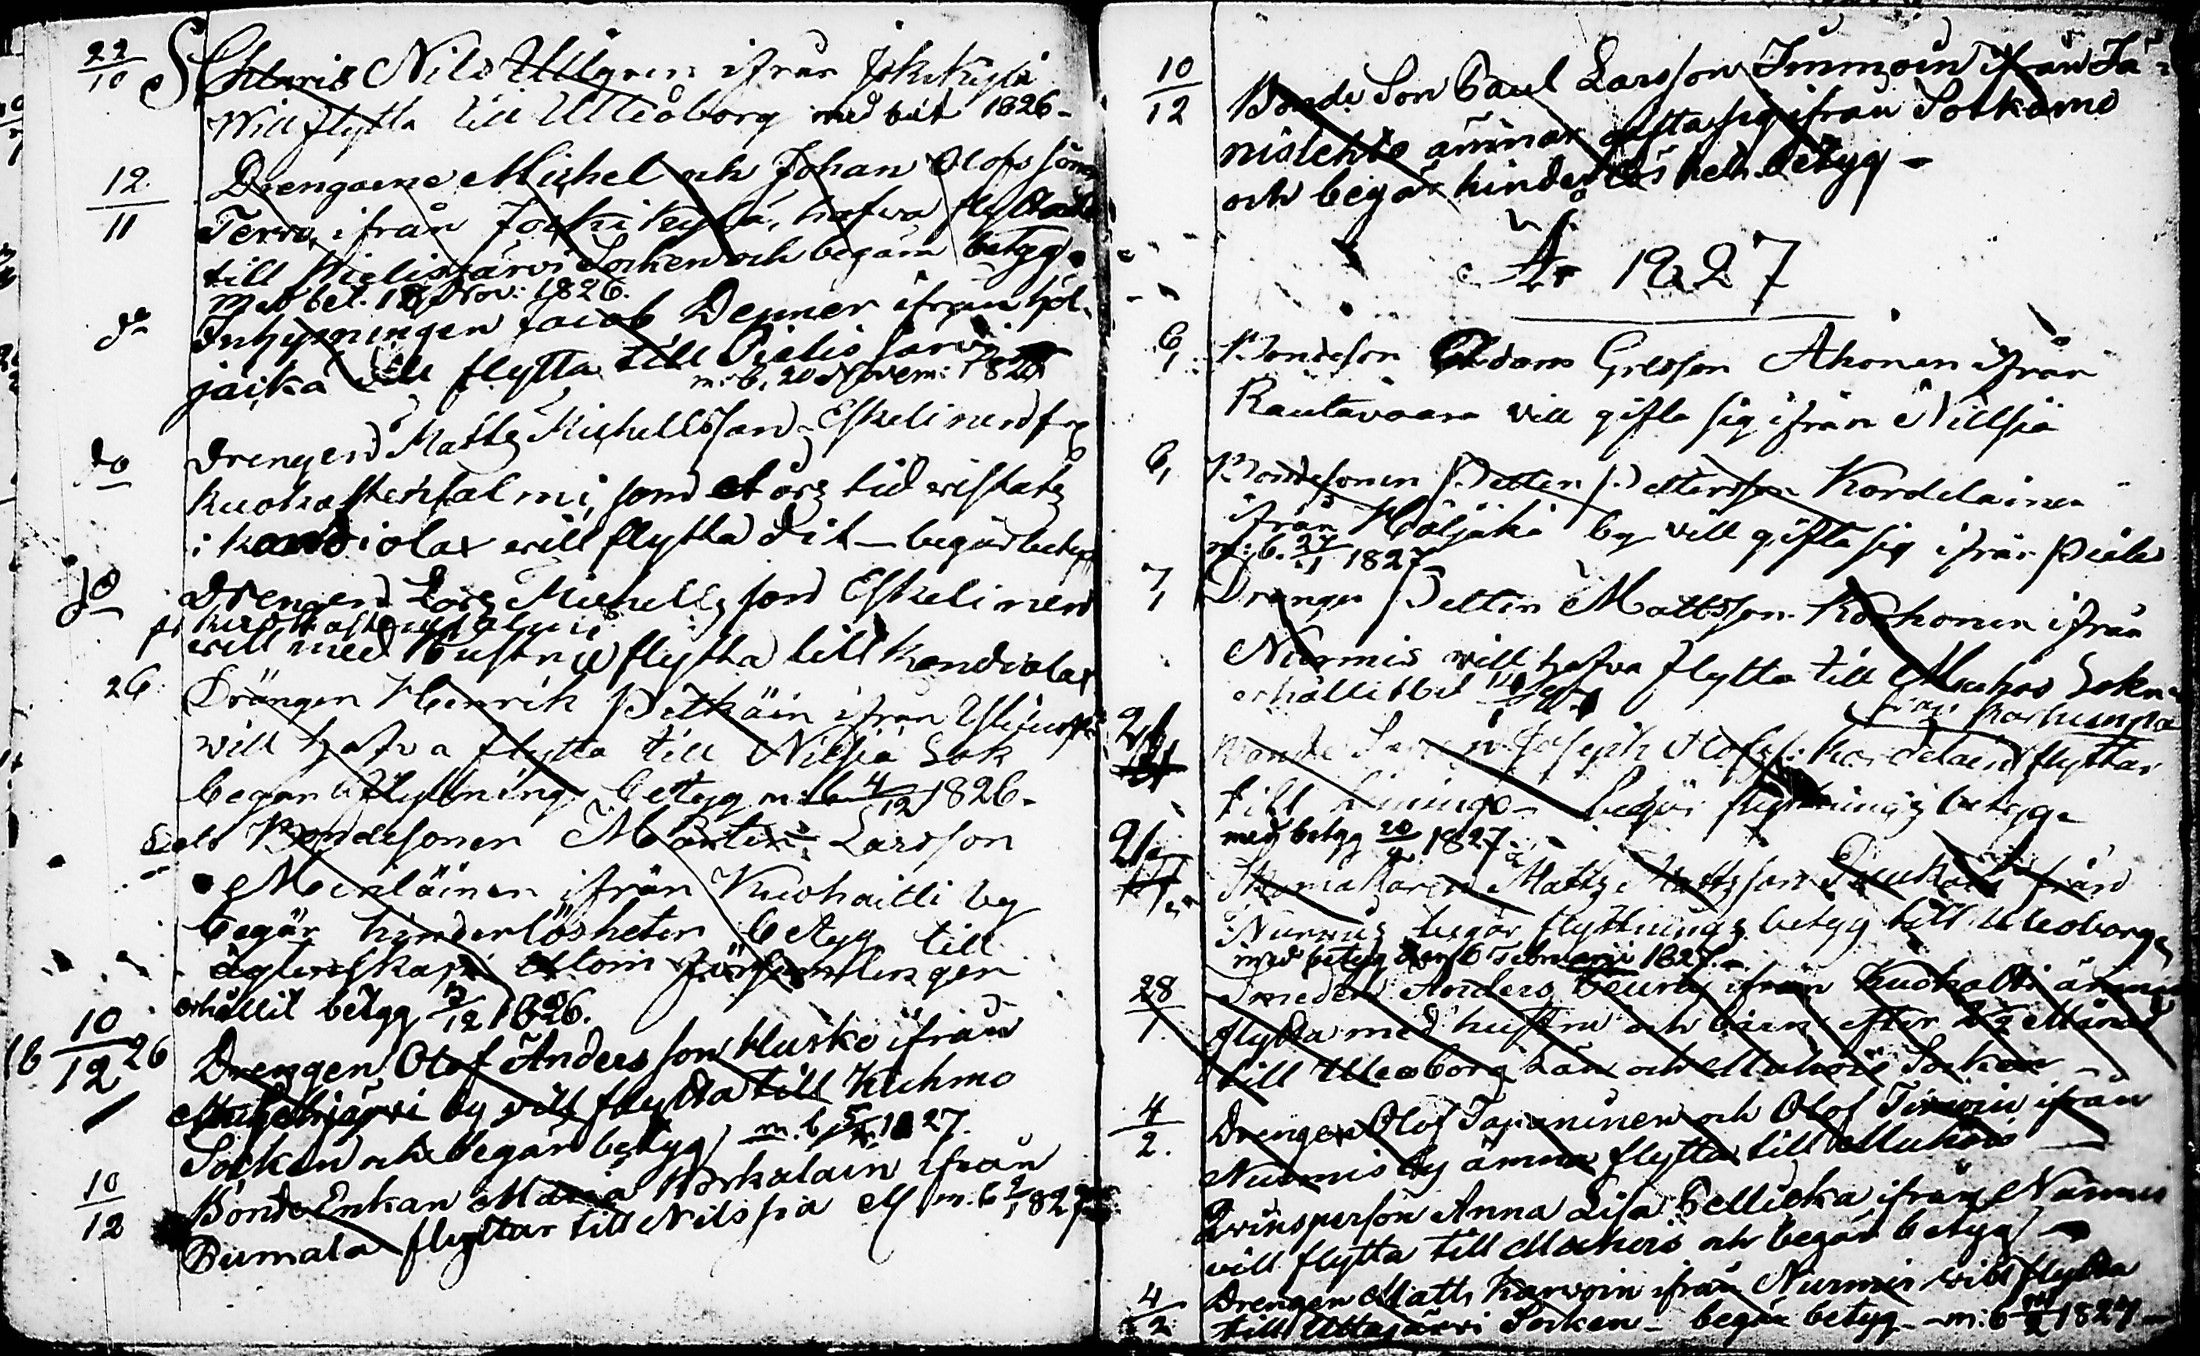 22/10 Nils Ullgren ifrån Jokikylä
Will flytta till Uleåborg med bet 1826-
12/11 Drengarne Michel och Johan Olofs söner
Terva, ifrån Jokikylä, hafva flyttat
till Pielisjärvi Socken och begära betyg.
Med bet. 18 Nov: 1826.
do Inhysningen Jacob Denner ifrån Höl-
jäikä vill flytta till Pielis järvi
m: b, 20 Novem: 1826
do Drengen Matts Michellsson Eskelinen fr
kuohastensalmi, som et års tid vistats
i kandiolax will flytta dit – begär betyg
do Drengen Lars Michells son Eskelinen
fr kuohastensalmi
will med Hustru flytta till Kandiolax
26 Drängen Henrik Pitkäin ifrån
will hafva flytta till Nilsiä Sok
begär uflyttning betyg m: b 4/12 1826-
Bondesonen Mårten Larsson
Meriläinen ifrån Kuohaitti by
begär hinderlösheten betyg till
ägtenskap utom församlingen
erhållit betyg 3/12 1826.
10/12 26 Drengen Olof Andersson Huske ifrån
by vill flytta till Kuhmo
Socken och begär betyg m. b 1827.
10/12 Bonde Enkan Maria Korkalain ifrån
Pumala flyttar till Nilssiä m. b 2/1 1827
10/12 Bonde Son Paul Larsson Immoin ifrån Jä-
nislehto ämnar gifta sig ifrån Sotkamo
och begär hinderlös heth betyg –
År 1827
6/1 Bondeson Adam Gresson Ahonen ifrån
Rautavaara vill gifta sig ifrån Nillsiä
6/1 Bondesonen Petter Pettersson Kordelainen
ifrån Höljäkä by vill gifta sig ifrån Pielis
m: b. 27/1 1827
7/1 Drengen Petter Mattsson Korhonen ifrån
Nurmis will hafva flytta till Muhos Sokn
erhållit bet
från Karhunpä
Bonde Sonen Joseph Olofs: Kordelain flyttar
till Liminge – begär flyttnings betyg-
med betyg 1827-
Skomakaren Matts Mattsson från
Nurmis begär flyttnings betyg till Uleoborg
med betyg den 6 Februarii 1827.-
28/1 Smeden Anders ifrån Kuohatti ämnar
flytta med hustru och barn efter
till Uleoborg Län och Muhois Socken
4/2. Drengen Olof Tapaninen och Olof Tirvoin ifrån
Nurmis by ämna flytta till Muhois
Qvinsperson Anna Lisa Pellicka ifrån Nurmis
vill flytta till Muhois och begär betyg –
4/2 Drengen Matts Karvoin ifrån Nurmis will flytta
till Uttajärvi Socken – begär betyg – m: b 1827 –